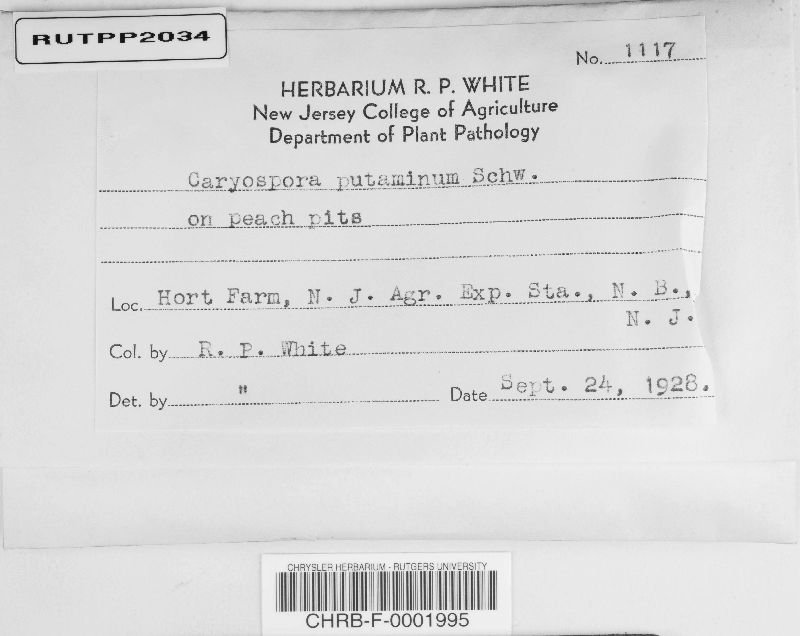 RUTPP2034
No. 1117
HERBARIUM R. P. WHITE
New Jersey College of Agriculture
Department of Plant Pathology
Caryospora putaminum Schw.
on peach pits
Loc. Hort Farm, N. J. Agr. Exp. Sta., N. B.,
N. J.
Col. by R. P. White
Det. by " Date Sept. 24, 1928.
CHRYSLER HERBARIUM - RUTGERS UNIVERSITY
CHRB-F-0001995